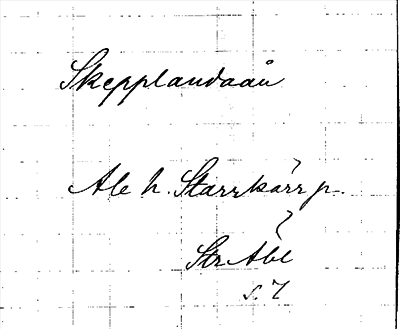 Skepplandaån
Ale h. Starrkärr p.
StrAbl
s. 7